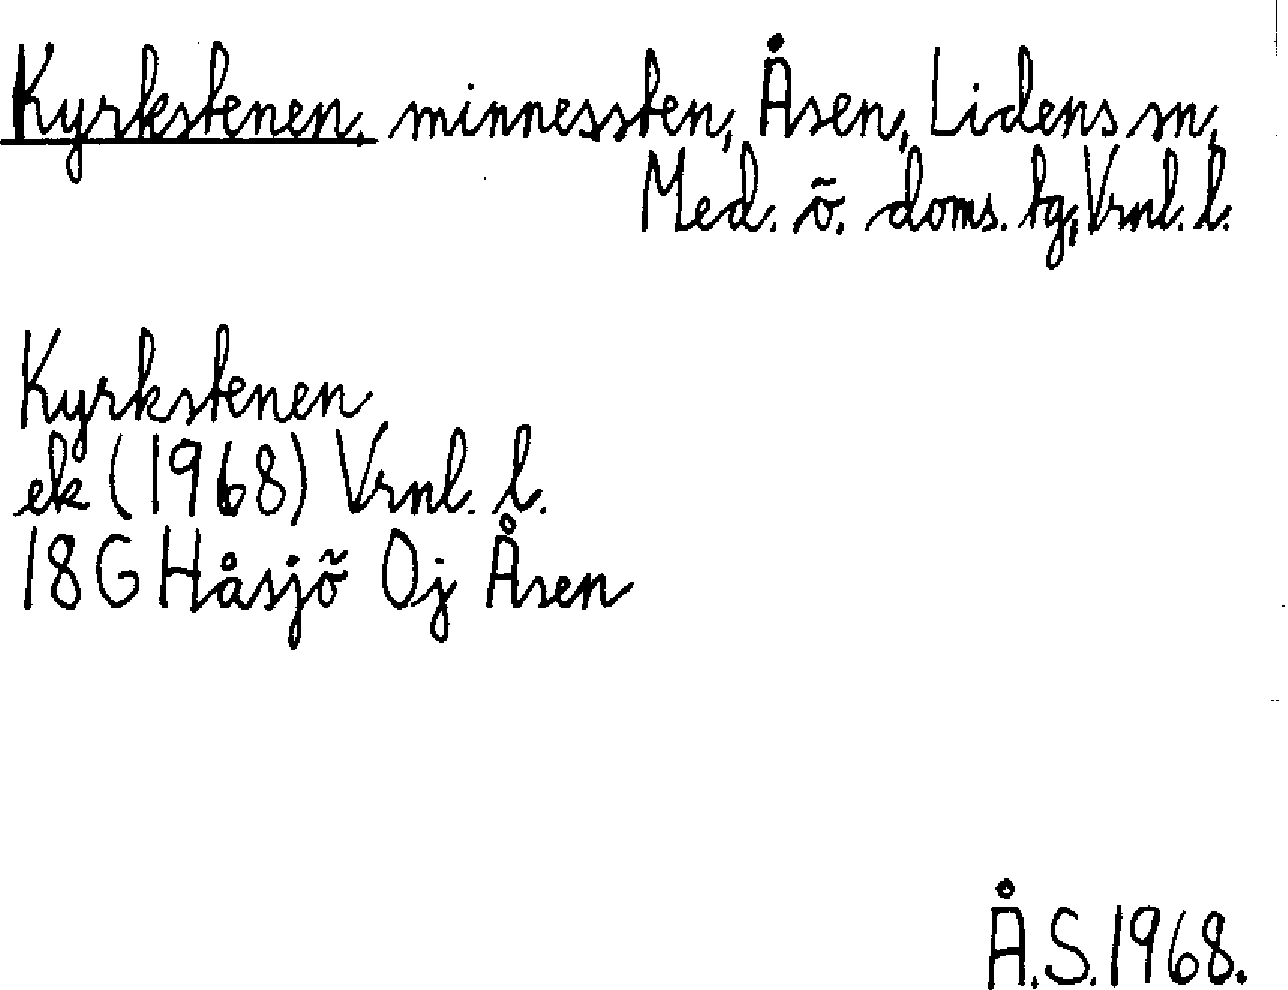 Kyrkstenen, minnessten, Åsen, Lidens sn,
Med. ö. doms. tg, Vrnl. l.
Kyrkstenen
ek (1968) Vrnl. l.
18G Håsjö 0j Åsen
Å.S. 1968.